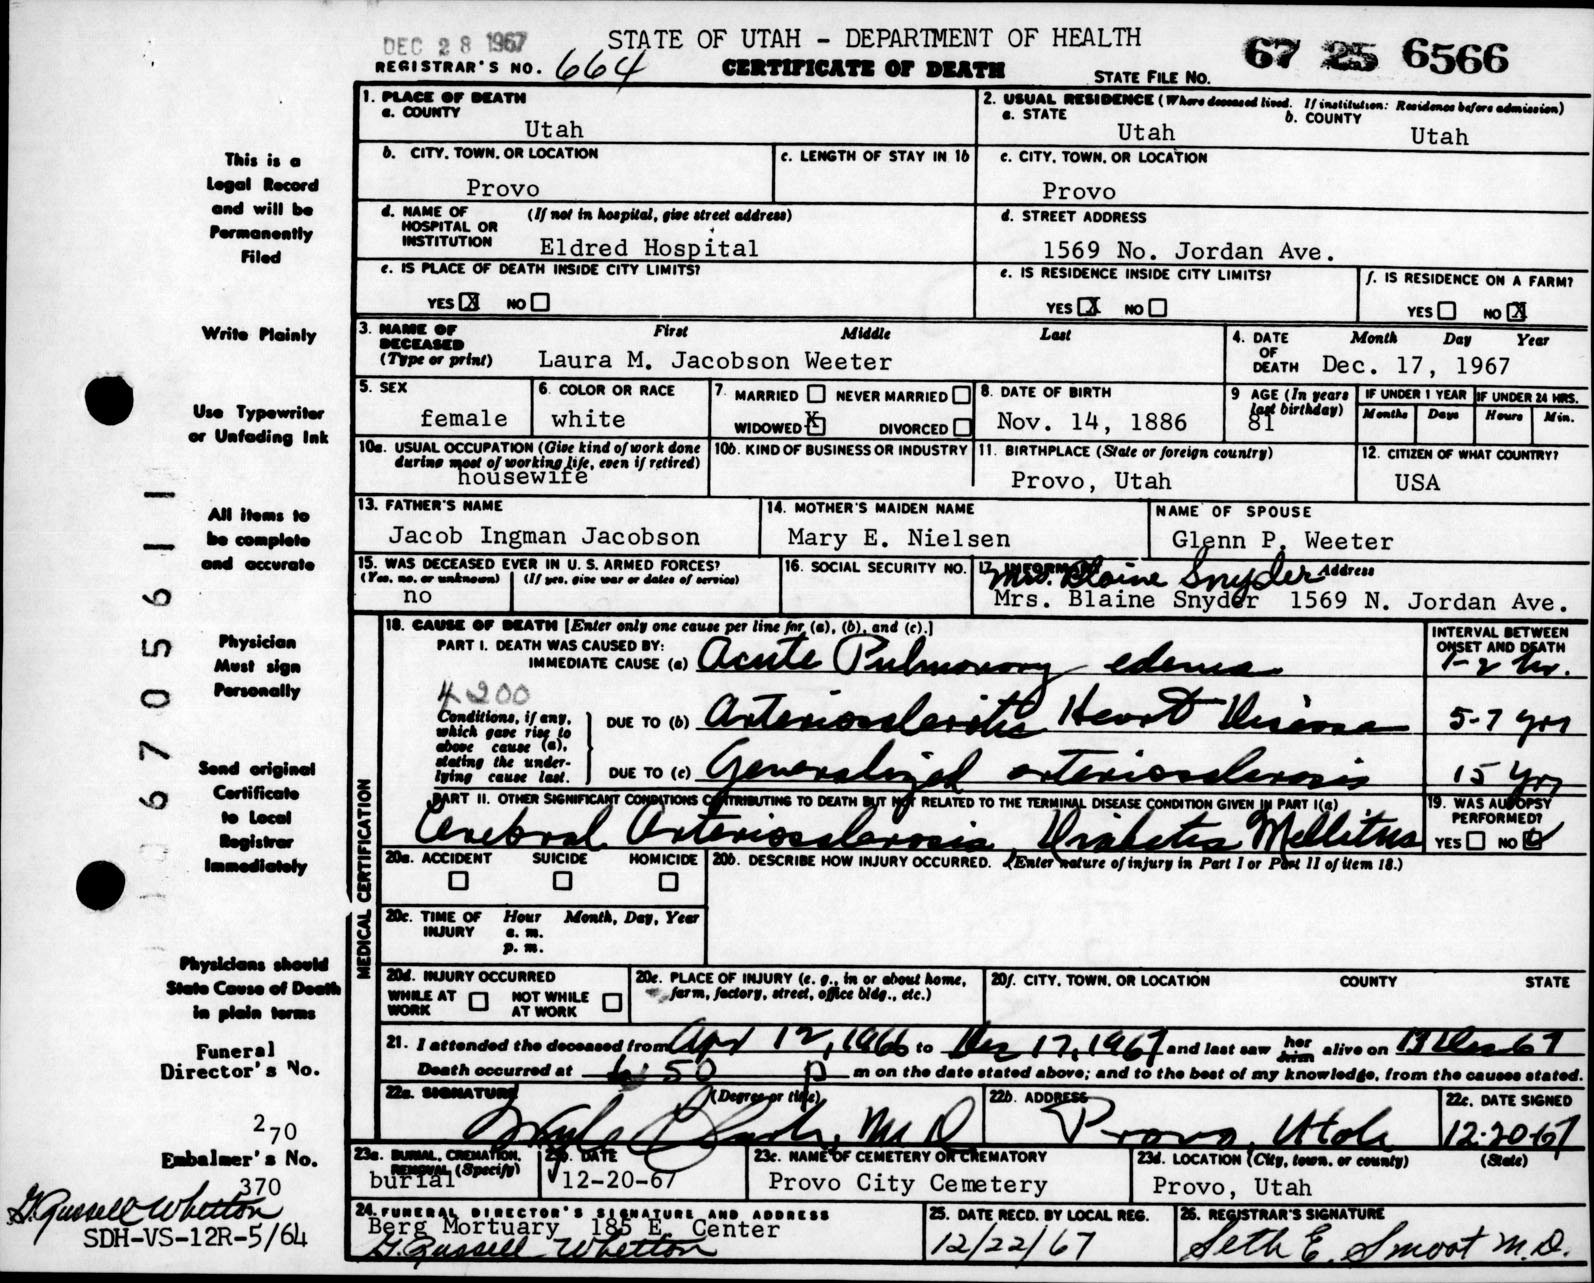 DEC 28 1967
STATE OF UTAH - DEPARTMENT OF HEALTH
67 25 6566
REGISTRAR'S NO. 664
CERTIFICATE OF DEATH
STATE FILE NO.
1. PLACE OF DEATH
a. COUNTY
Utah
2. USUAL RESIDENCE (Where deceased lived. If institution: Residence before admission)
a. STATE
Utah
b. COUNTY
Utah
b. CITY, TOWN, OR LOCATION
Provo
c. LENGTH OF STAY IN 1b
c. CITY, TOWN, OR LOCATION
Provo
d. NAME OF HOSPITAL OR INSTITUTION
(If not in hospital, give street address)
Eldred Hospital
d. STREET ADDRESS
1569 No. Jordan Ave.
e. IS PLACE OF DEATH INSIDE CITY LIMITS?
YES X NO
e. IS RESIDENCE INSIDE CITY LIMITS?
YES X NO
f. IS RESIDENCE ON A FARM?
YES NO X
3. NAME OF DECEASED
(Type or print)
First Middle Last
Laura M. Jacobson Weeter
4. DATE OF DEATH
Month Day Year
Dec. 17, 1967
5. SEX
female
6. COLOR OR RACE
white
7. MARRIED NEVER MARRIED
WIDOWED X DIVORCED
8. DATE OF BIRTH
Nov. 14, 1886
9 AGE (In years last birthday)
81
IF UNDER 1 YEAR
Months Days
IF UNDER 24 HRS.
Hours Min.
10a. USUAL OCCUPATION (Give kind of work done during most of working life, even if retired)
housewife
10b. KIND OF BUSINESS OR INDUSTRY
11. BIRTHPLACE (State or foreign country)
Provo, Utah
12. CITIZEN OF WHAT COUNTRY?
USA
13. FATHER'S NAME
Jacob Ingman Jacobson
14. MOTHER'S MAIDEN NAME
Mary E. Nielsen
NAME OF SPOUSE
Glenn P. Weeter
15. WAS DECEASED EVER IN U. S. ARMED FORCES?
(Yes, no, or unknown) (If yes, give war or dates of service)
no
16. SOCIAL SECURITY NO.
17. INFORMANT Address
Mrs. Blaine Snyder
Mrs. Blaine Snyder 1569 N. Jordan Ave.
18. CAUSE OF DEATH [Enter only one cause per line for (a), (b), and (c).]
INTERVAL BETWEEN ONSET AND DEATH
PART I. DEATH WAS CAUSED BY:
IMMEDIATE CAUSE (a) Acute Pulmonary edema
1-2 hr.
4200
Conditions, if any, which gave rise to above cause (a), stating the underlying cause last.
DUE TO (b) Arteriosclerotic Heart Disease
5-7 yrs
DUE TO (c) Generalized arteriosclerosis
15 yrs
PART II. OTHER SIGNIFICANT CONDITIONS CONTRIBUTING TO DEATH BUT NOT RELATED TO THE TERMINAL DISEASE CONDITION GIVEN IN PART I(a)
Cerebral Arteriosclerosis Diabetes Mellitus
19. WAS AUTOPSY PERFORMED?
YES NO
MEDICAL CERTIFICATION
20a. ACCIDENT SUICIDE HOMICIDE
20b. DESCRIBE HOW INJURY OCCURRED. (Enter nature of injury in Part I or Part II of item 18.)
20c. TIME OF INJURY
Hour Month, Day, Year
a. m.
p. m.
20d. INJURY OCCURRED
WHILE AT WORK NOT WHILE AT WORK
20e. PLACE OF INJURY (e. g., in or about home, farm, factory, street, office bldg., etc.)
20f. CITY, TOWN, OR LOCATION COUNTY STATE
21. I attended the deceased from Apr 12, 1966 to Dec 17, 1967 and last saw her him alive on 17 Dec 67
Death occurred at 6:50 p m on the date stated above; and to the best of my knowledge, from the causes stated.
22a. SIGNATURE (Degree or title)
M D
22b. ADDRESS
Provo, Utah
22c. DATE SIGNED
12-20-67
23a. BURIAL, CREMATION, REMOVAL (Specify)
burial
23b. DATE
12-20-67
23c. NAME OF CEMETERY OR CREMATORY
Provo City Cemetery
23d. LOCATION (City, town, or county) (State)
Provo, Utah
24. FUNERAL DIRECTOR'S SIGNATURE AND ADDRESS
Berg Mortuary 185 E. Center
G. Russell Whetton
25. DATE RECD. BY LOCAL REG.
12/22/67
26. REGISTRAR'S SIGNATURE
Seth E. Smoot M.D.
This is a
Legal Record
and will be
Permanently
Filed
Write Plainly
Use Typewriter
or Unfading Ink
All items to
be complete
and accurate
Physician
Must sign
Personally
Send original
Certificate
to Local
Registrar
Immediately
Physicians should
State Cause of Death
in plain terms
Funeral
Director's No.
270
Embalmer's No.
370
G. Russell Whetton
SDH-VS-12R-5/64
67056911